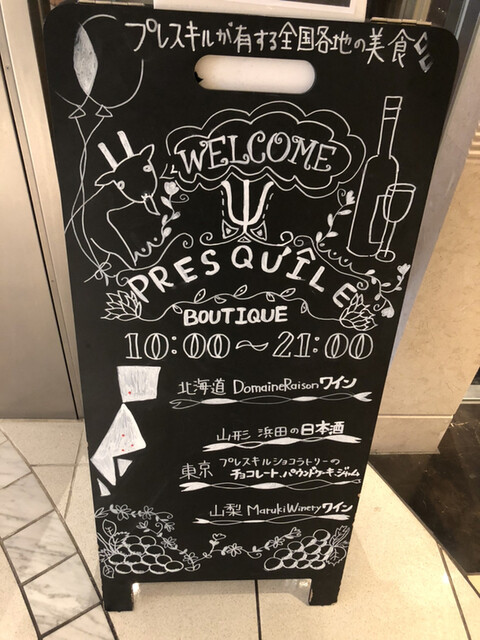 プレスキルが有する全国各地の美食
WELCOME
PRESQU'ÎLE
BOUTIQUE
10:00～21:00
北海道 DomaineRaison ワイン
山形 浜田の日本酒
東京 プレスキルショコラトリーの
チョコレート、パウンドケーキ、ジャム
山梨 MarukiWinery ワイン